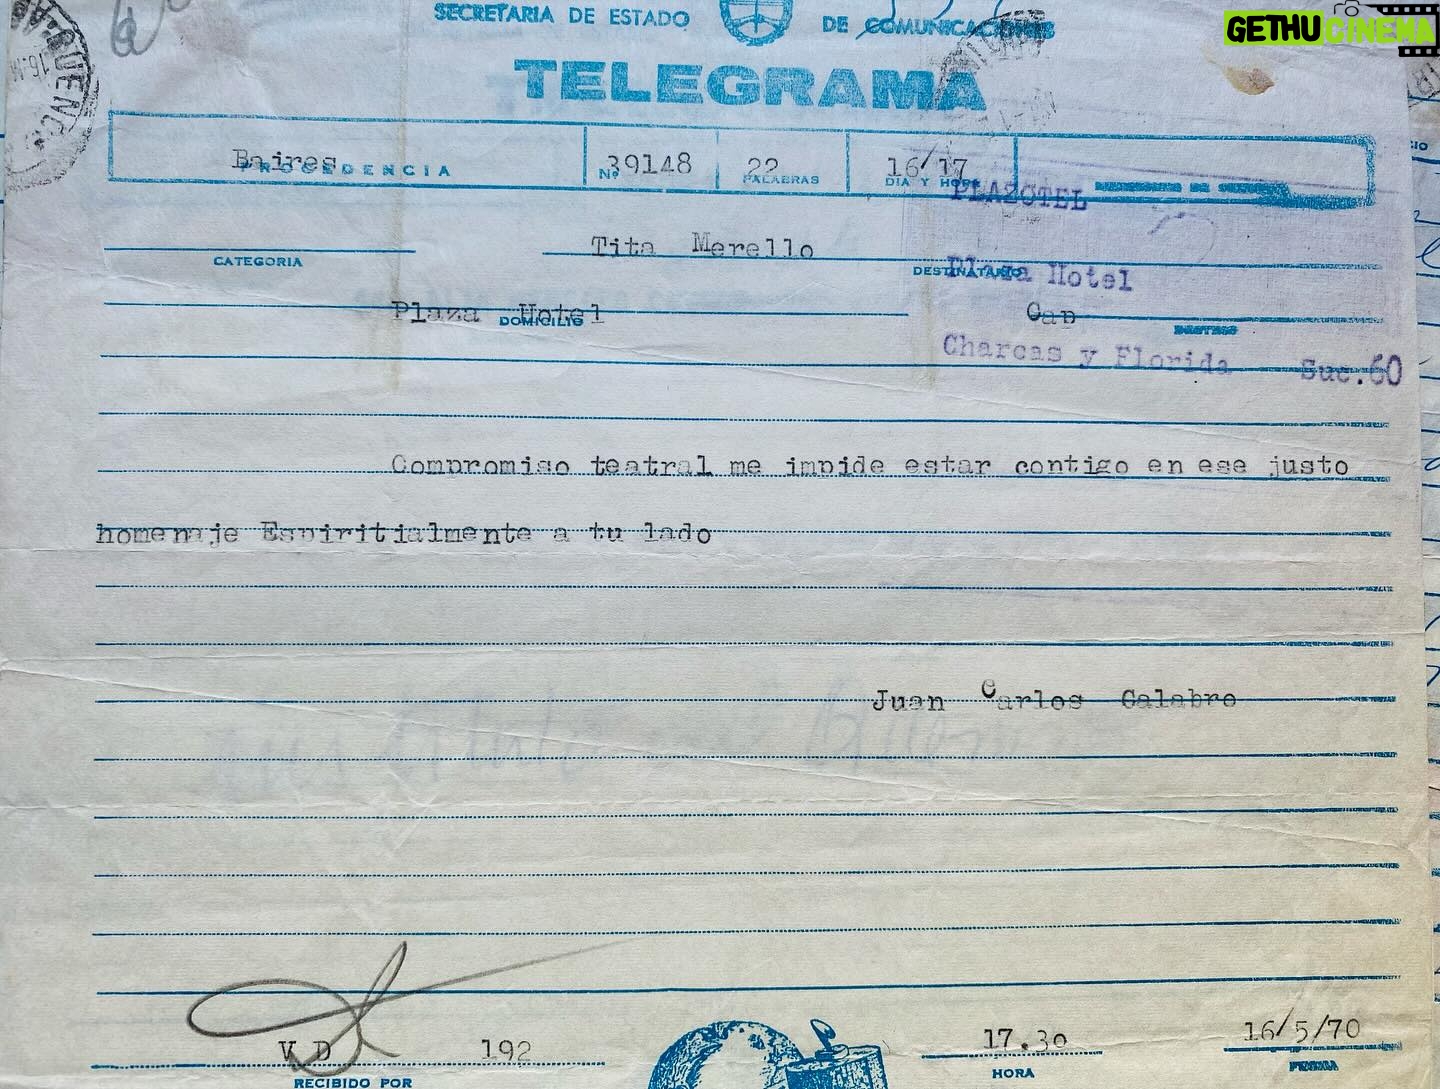 GETHUCINEMA
SECRETARIA DE ESTADO DE COMUNICACIONES
TELEGRAMA
Baires Nº 39148 22 16/17
PROCEDENCIA PALABRAS DIA Y HORA
PLAZOTEL
Tita Merello
CATEGORIA DESTINATARIO
Plaza Hotel
Plaza Hotel Cap
DOMICILIO DESTINO
Charcas y Florida Suc.60
Compromiso teatral me impide estar contigo en ese justo
homenaje Espiritialmente a tu lado
Juan Carlos Calabro
V D 192 17.30 16/5/70
RECIBIDO POR HORA FECHA